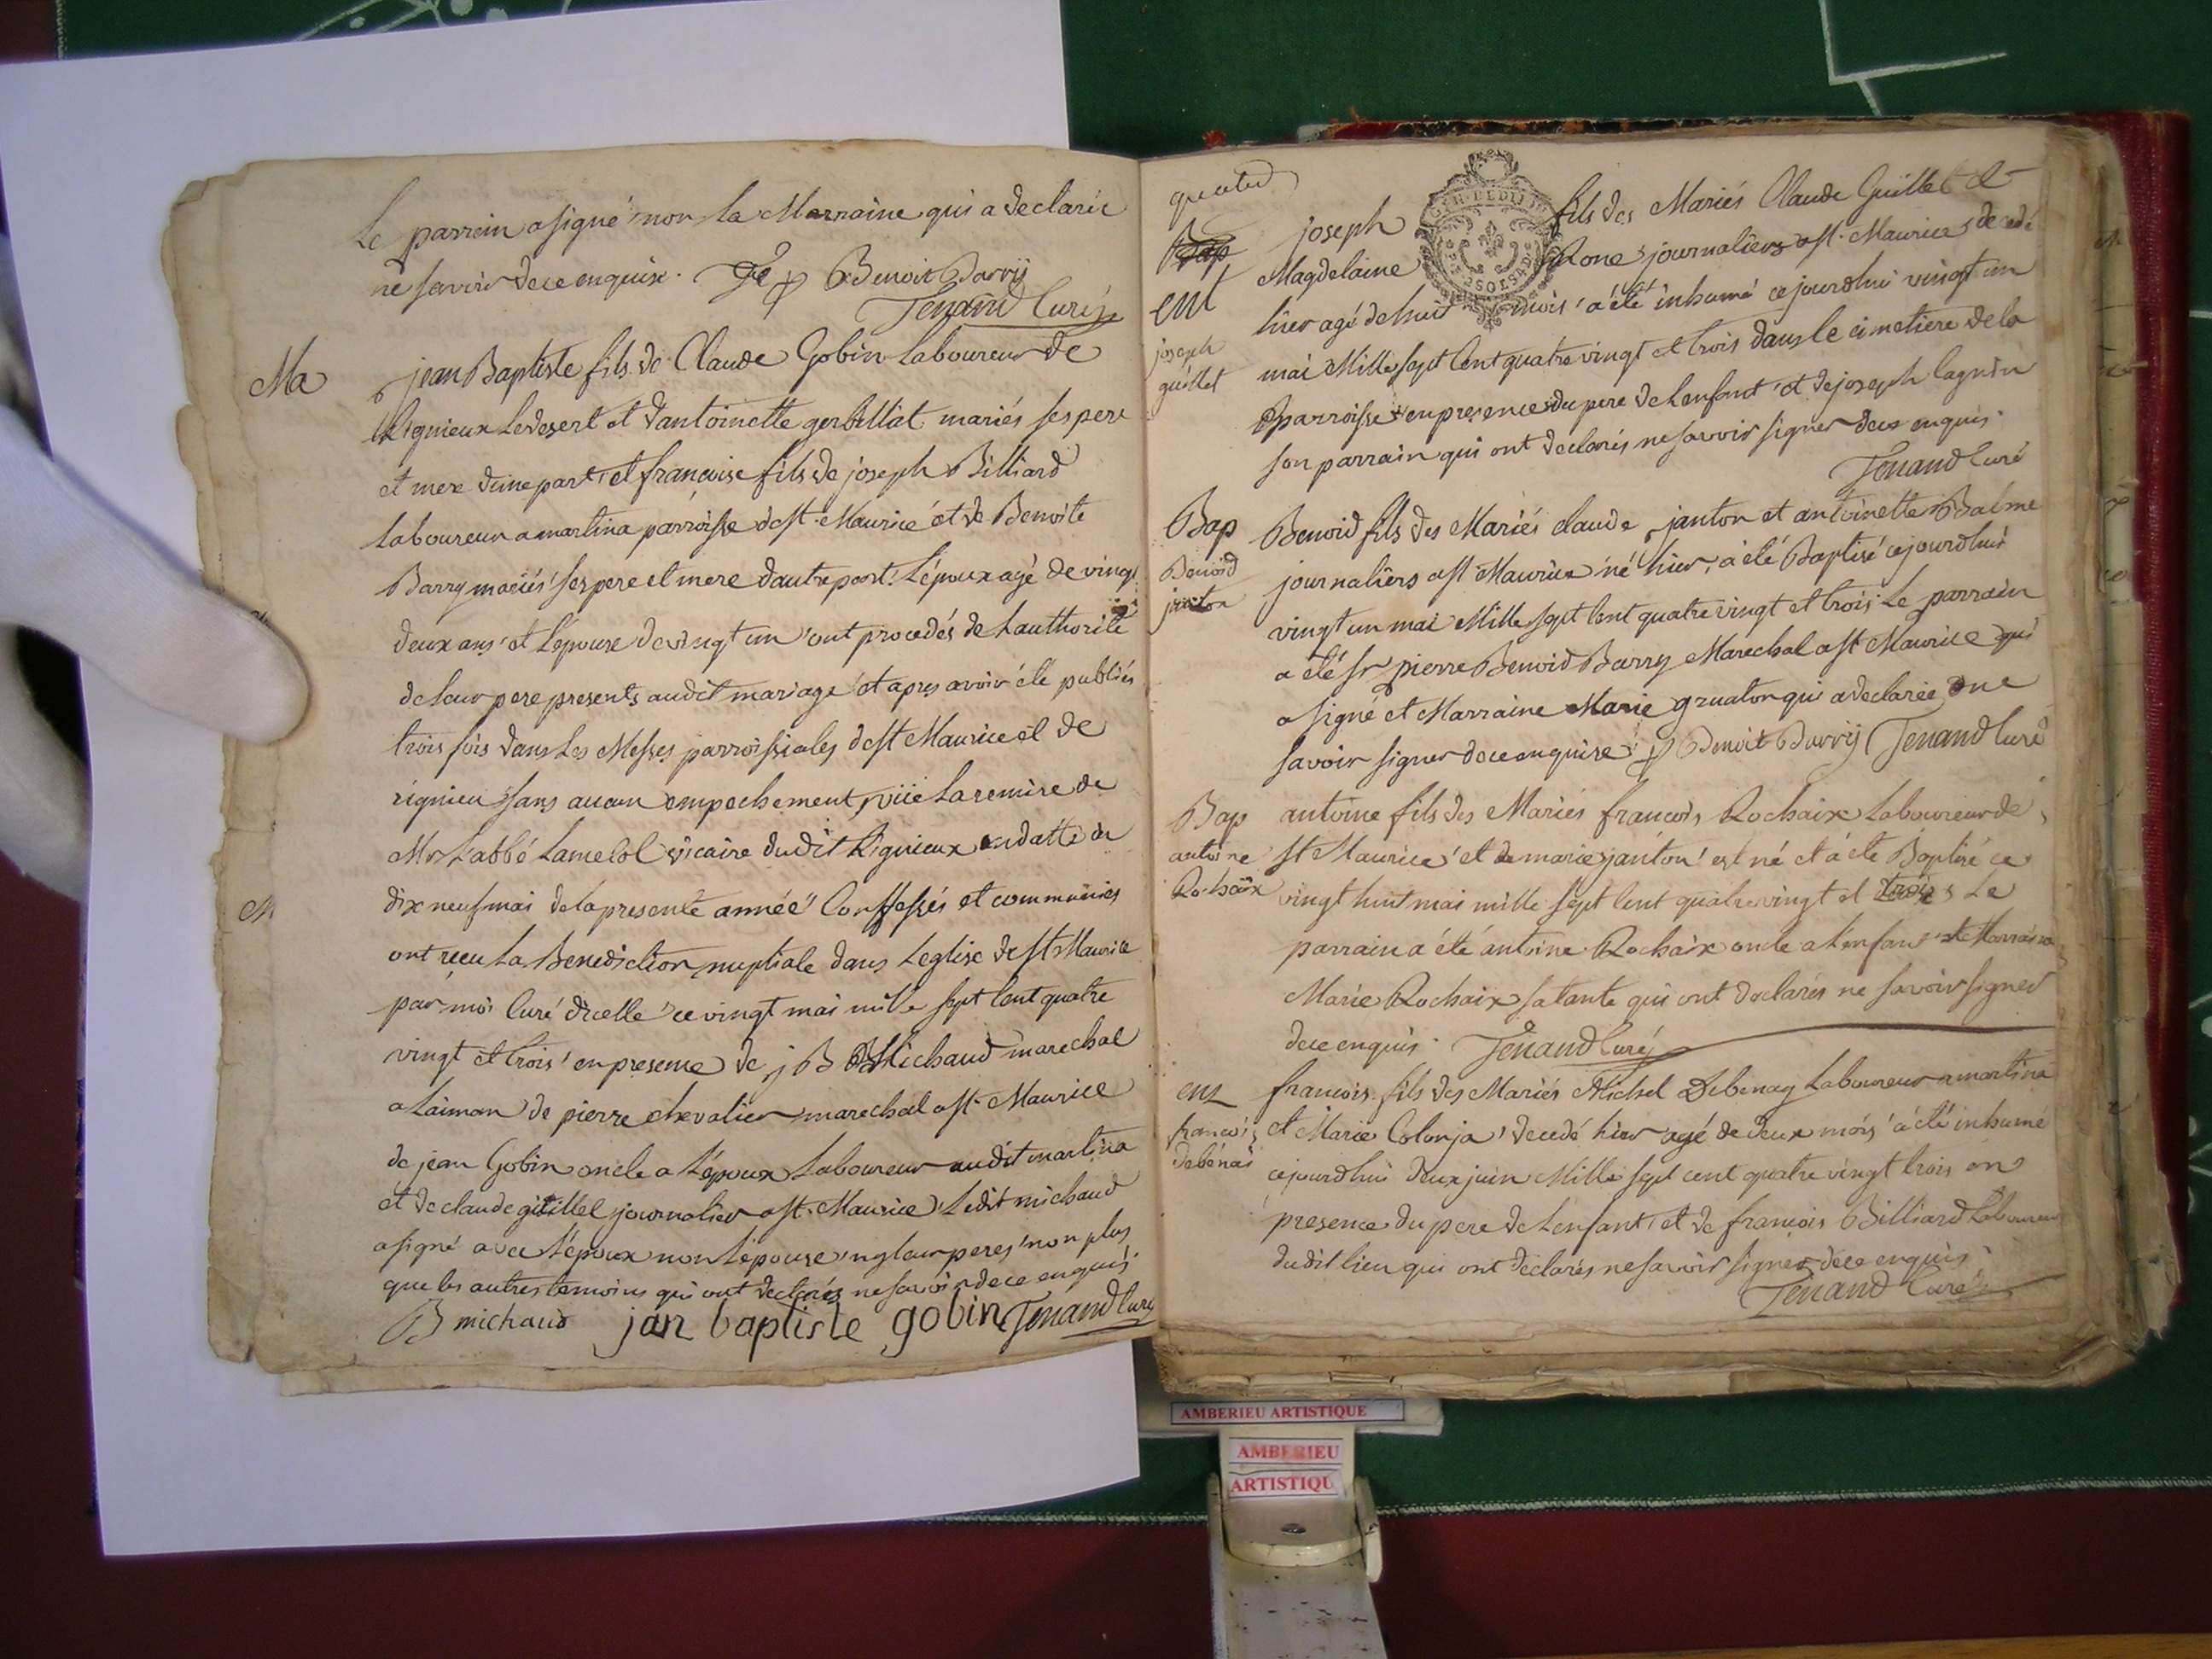 Le parrein a signé non la Marraine qui a declarée
ne savoir de ce enquise. P Benoit Barrÿ
Tenand Curé
Ma
jean Baptiste fils de Claude Gobin Laboureur de
Rignieux Ledesert et dantoinette gerbillat mariés ses pere
et mere dune part, et francoise fils de joseph Billiard
Laboureur a martina parroisse de st. Maurice et de Benoite
Barry mariés ses pere et mere dautre part. L'époux agé de vingt
deux ans et L'epouse de vingt un ont procedés de Lauthorité
de leur pere presents audit mariage et apres avoir été publiés
trois fois dans Les Messes parroissiales de st Maurice et de
rignieu sans aucun empechement, vüe La remise de
Mr L'abbé Lamelol vicaire dudit Rignieux en datte du
dix neuf mai de la presente année Conffessés et communiés
ont recu La Benediction nuptiale dans Leglise de st Maurice
par moi Curé dicelle ce vingt mai mille sept Cent quatre
vingt et trois en presence de j B Michaud marechal
a Laiman de pierre chevalier marechal a st. Maurice
de jean Gobin oncle a L'époux Laboureur audit martina
et de claude guillel journalier a st. Maurice, Ledit michaud
a signé avec L'époux non L'epouse ny leur peres non plus
que les autres temoins qui ont declarés ne savoir de ce enquis.
B michaud jan baptiste gobin Tenand Curé
joseph fils des Mariés Claude Guillet et
Bap
Magdelaine Rone journaliers a st. Maurice decedé
ent
hier agé de huit mois a été inhumé ce jourdhui vingt un
joseph
guillet
mai Mille sept Cent quatre vingt et trois dans le cimetiere de la
parroisse en presence du pere de Lenfant et de joseph lagnin
son parrain qui ont declarés ne savoir signer de ce enquis.
Tenand Curé
Bap
Benoid
janton
Benoid fils des Mariés claude janton et antoinette Balme
journaliers a st Maurice né hier, a été Baptisé ce jourdhui
vingt un mai Mille sept Cent quatre vingt et trois. Le parrain
a été sr pierre Benoid Barry Marechal a st Maurice qui
a signé et Marraine Marie gruaton qui a declarée ne
savoir signer de ce enquise. P Benoit Barrÿ Tenand Curé
Bap
antoine
Rochaix
antoine fils des Mariés francois Rochaix Laboureur de
st Maurice et de marie janton est né et a été Baptisé ce
vingt huit mai mille sept Cent quatre vingt et trois Le
parrain a été antoine Rochaix oncle a Lenfant et Marraine
Marie Rochaix sa tante qui ont declarés ne savoir signer
de ce enquis. Tenand Curé
ent
francois
debénai
francois fils des Mariés Michel Debenay Laboureur a martina
et Marie Colonja decedé hier agé de deux mois a été inhumé
ce jourdhui deux juin Mille sept cent quatre vingt trois en
presence du pere de Lenfant et de francois Billiard Laboureur
dudit lieu qui ont declarés ne savoir signer de ce enquis.
Tenand Curé
AMBERIEU ARTISTIQUE
AMBERIEU
ARTISTIQU